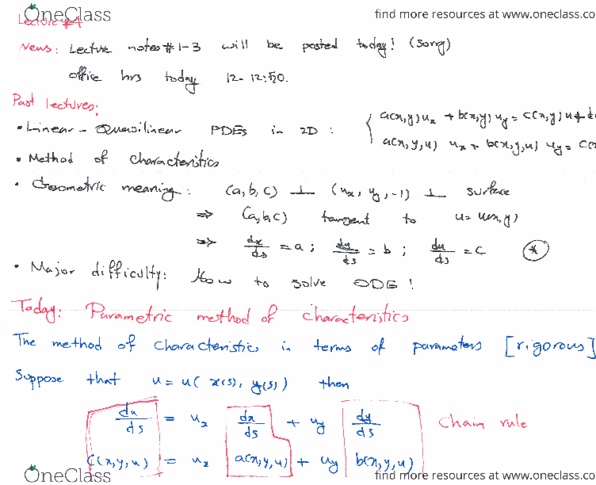 OneClass
find more resources at www.oneclass.co
Lecture #4
News: Lecture notes #1-3 will be posted today! (sorry)
office hrs today 12-12:50.
Past lectures:
• Linear - Quasilinear PDEs in 2D: { a(x,y) ux + b(x,y) uy = c(x,y) u + d
a(x,y,u) ux + b(x,y,u) uy = c(x
• Method of characteristics
• Geometric meaning: (a,b,c) ⊥ (ux, uy, -1) ⊥ surface
⇒ (a,b,c) tangent to u = u(x,y)
⇒ dx/ds = a; dy/ds = b; du/ds = c (*)
• Major difficulty: How to solve ODE!
Today: Parametric method of characteristics
The method of characteristics in terms of parameters [rigorous]
Suppose that u = u(x(s), y(s)) then
du/ds = ux dx/ds + uy dy/ds chain rule
c(x,y,u) = ux a(x,y,u) + uy b(x,y,u)
OneClass
find more resources at www.oneclass.co